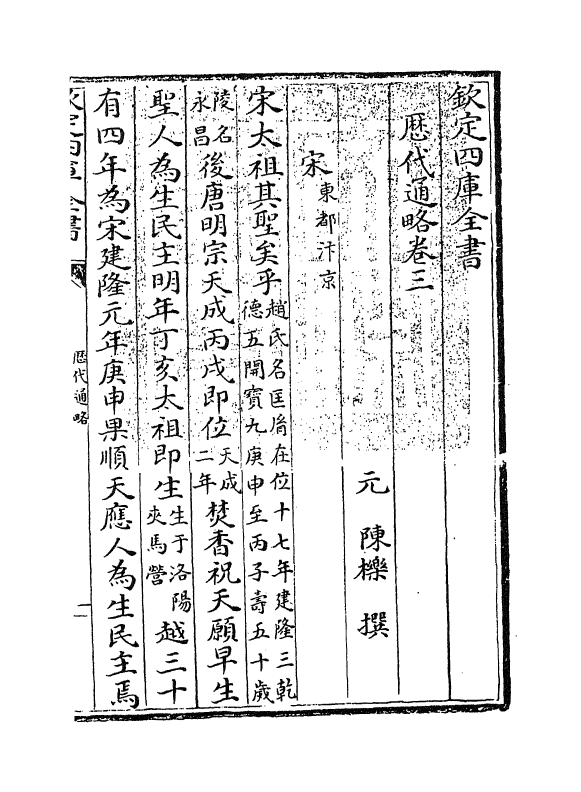 欽定四庫全書
歴代通略卷三
元 陳櫟 撰
宋東都汴京
宋太祖其聖矣乎趙氏名匡胤在位十七年建隆三乾德五開寶九庚申至丙子壽五十歲
陵名永昌後唐明宗天成丙戌即位天成二年焚香祝天願早生
聖人為生民主明年丁亥太祖即生生于洛陽夾馬營越三十
有四年為宋建隆元年庚申果順天應人為生民主焉
欽定四庫全書
歴代通略
一